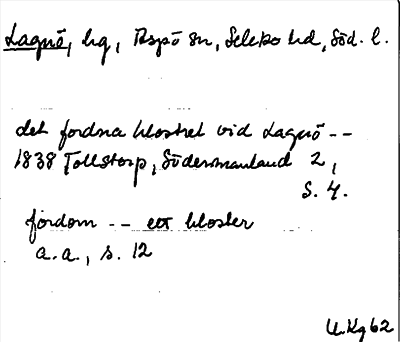 Lagnö, hg, Aspö sn, Selebo hd, Söd. l.
det fordna klostret vid Lagnö --
1838 Tollstorp, Södermanland 2,
s. 4.
fordom -- ett kloster
a.a., s. 12
U.Kg 62